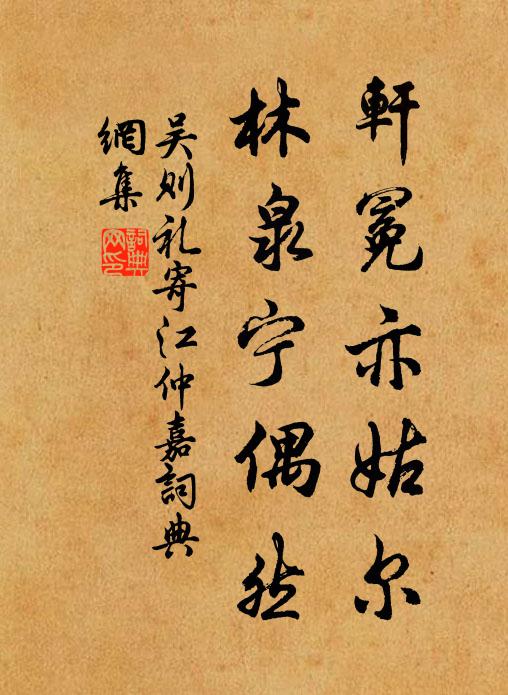 軒冕亦姑尔
林泉宁偶然
吴则礼寄江仲嘉詞典
網集
詞典
网印